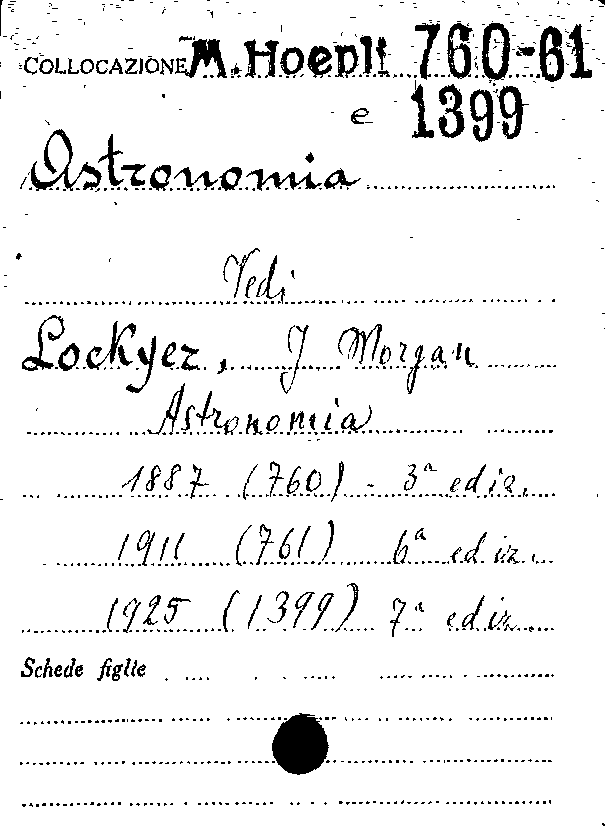 COLLOCAZIONE M. Hoepli 760-61
e 1399
Astronomia
Vedi
Lockyer, J Morgan
Astronomia
1887 (760) - 3ª ediz.
1911 (761) 6ª ediz.
1925 (1399) 7ª ediz.
Schede figlie